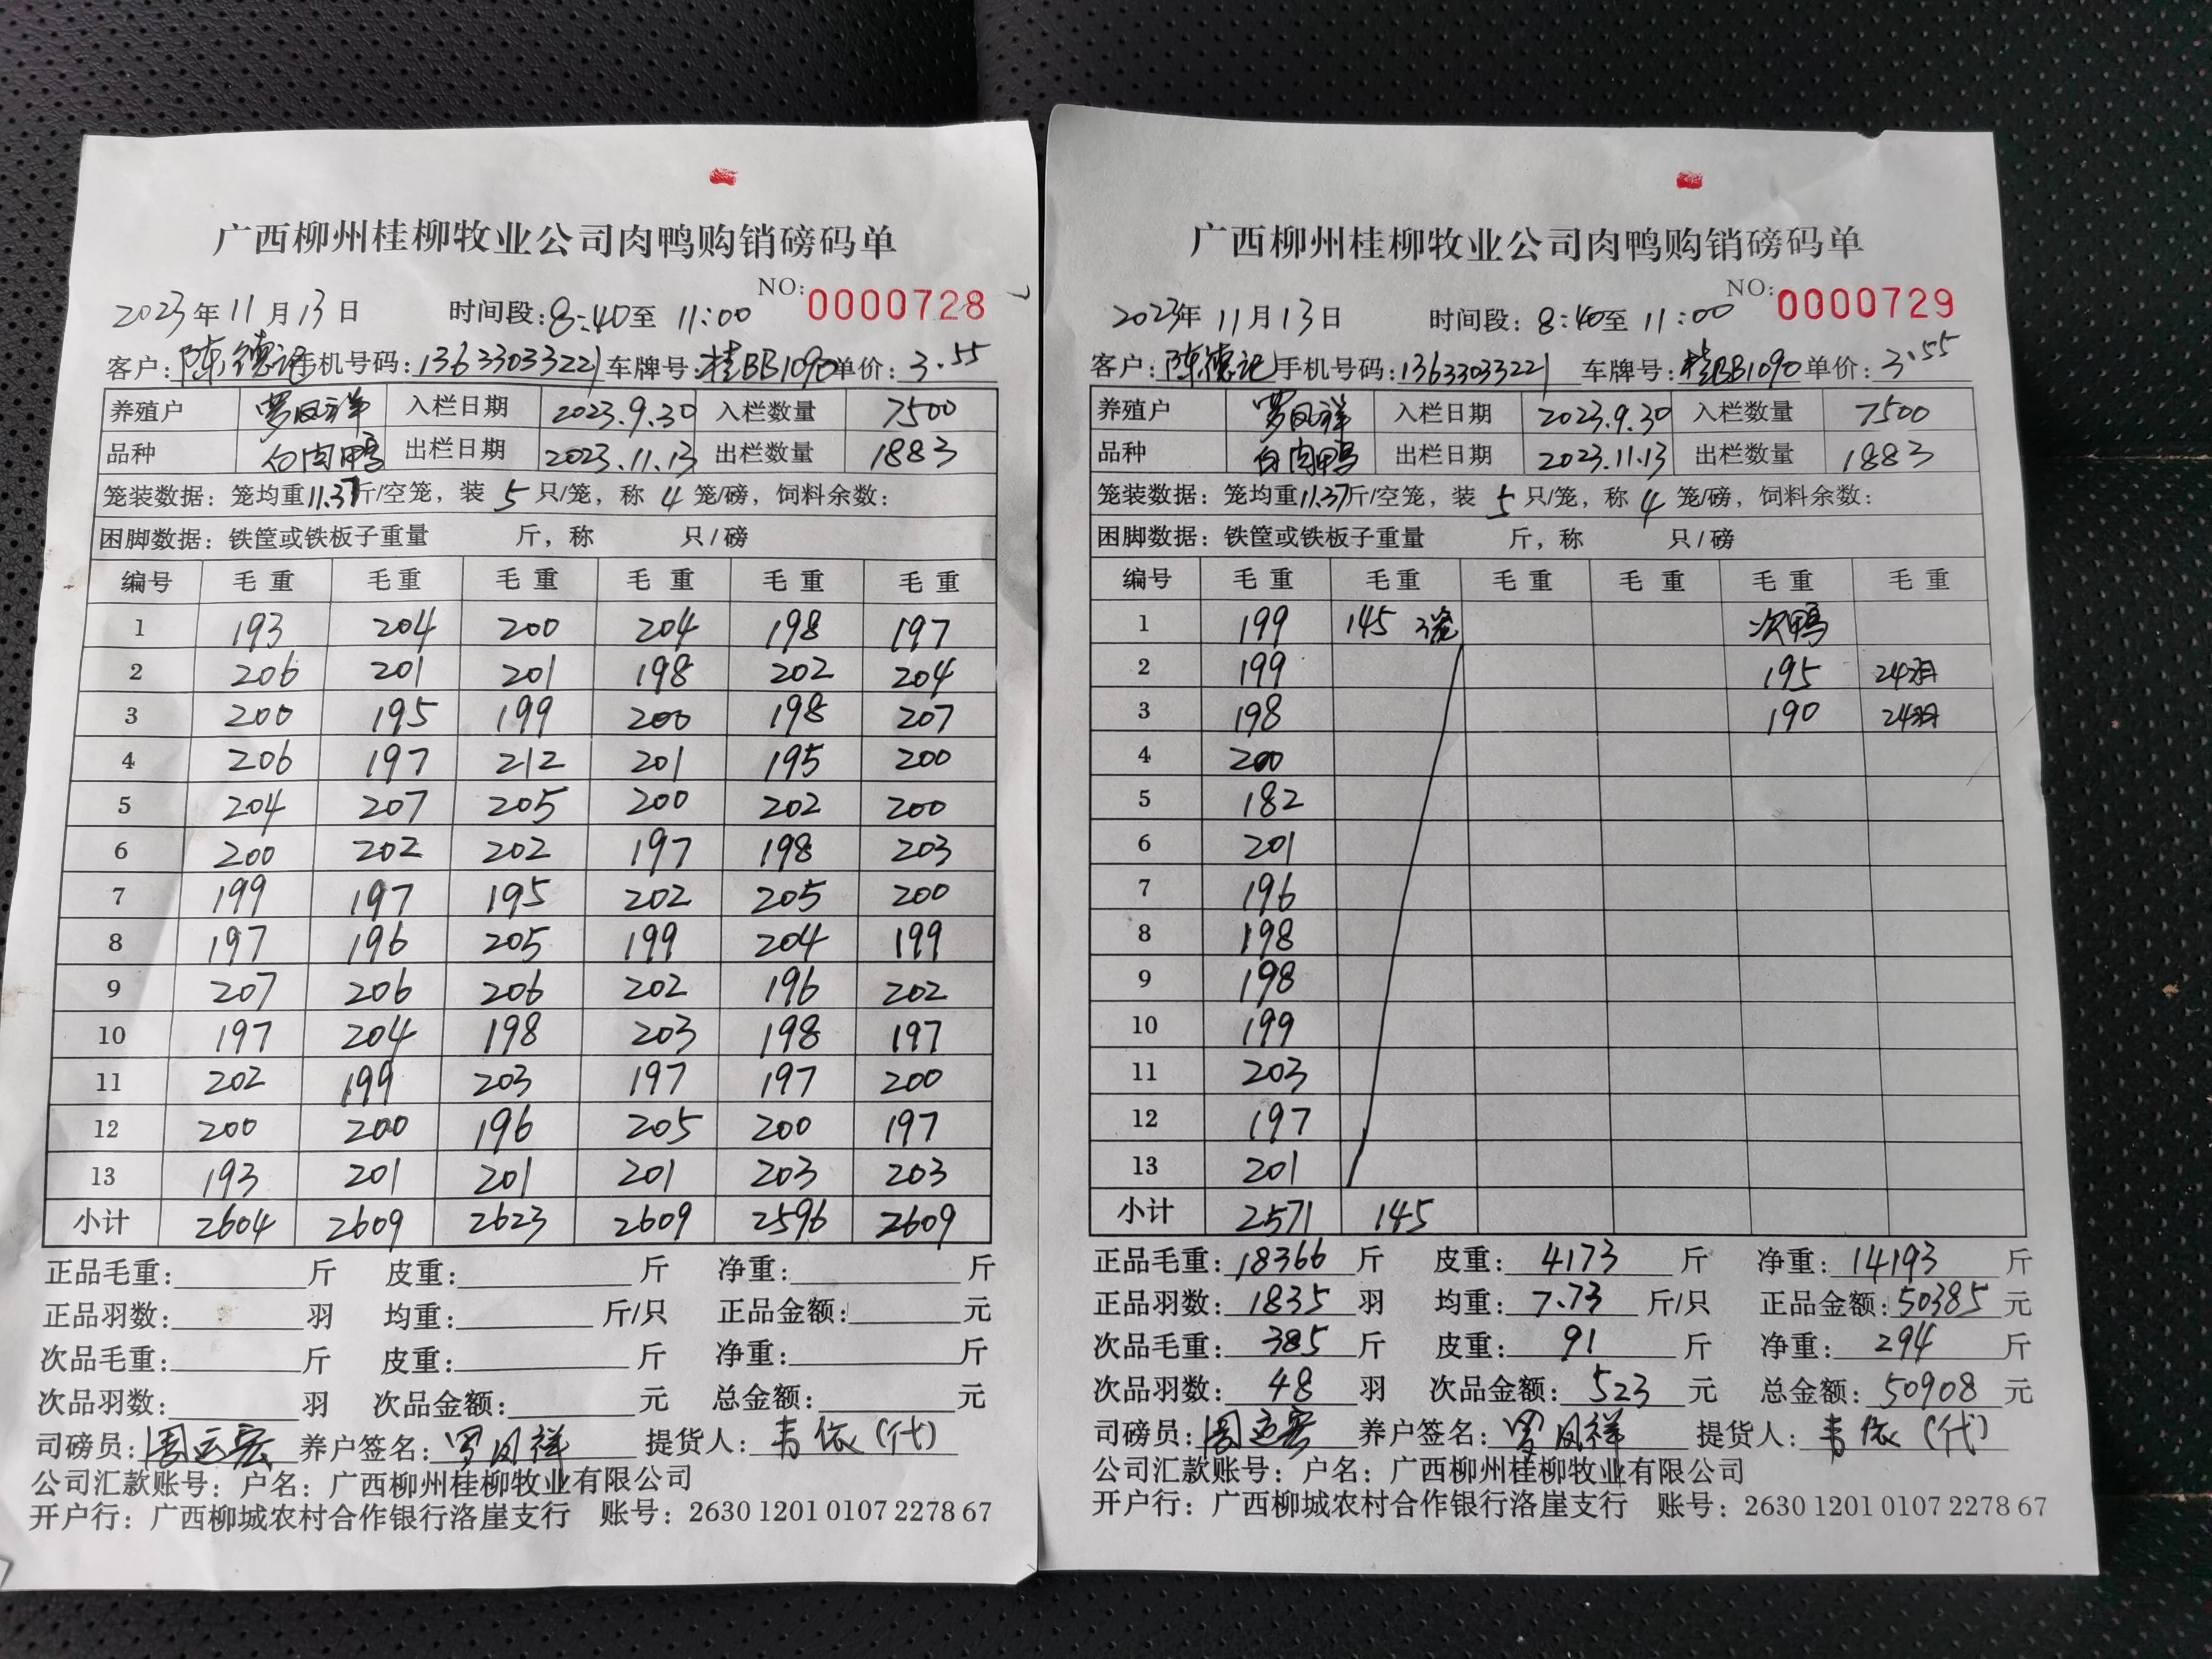 广西柳州桂柳牧业公司肉鸭购销磅码单
NO: 0000728
2023年11月13日 时间段:8:40至 11:00
客户:陈德记手机号码:13633033221车牌号:桂BB1090单价:3.55
养殖户 罗凤祥 入栏日期 2023.9.30 入栏数量 7500
品种 白肉鸭 出栏日期 2023.11.13 出栏数量 1883
笼装数据:笼均重11.37斤/空笼,装 5 只/笼,称 4 笼/磅,饲料余数:
困脚数据:铁筐或铁板子重量 斤,称 只/磅
编号 毛重 毛重 毛重 毛重 毛重 毛重
1 193 204 200 204 198 197
2 206 201 201 198 202 204
3 200 195 199 200 198 207
4 206 197 212 201 195 200
5 204 207 205 200 202 200
6 200 202 202 197 198 203
7 199 197 195 202 205 200
8 197 196 205 199 204 199
9 207 206 206 202 196 202
10 197 204 198 203 198 197
11 202 199 203 197 197 200
12 200 200 196 205 200 197
13 193 201 201 201 203 203
小计 2604 2609 2623 2609 2596 2609
正品毛重:斤 皮重:斤 净重:斤
正品羽数:羽 均重:斤/只 正品金额:元
次品毛重:斤 皮重:斤 净重:斤
次品羽数:羽 次品金额:元 总金额:元
司磅员:周运宏 养户签名:罗凤祥 提货人:韦依(代)
公司汇款账号:户名:广西柳州桂柳牧业有限公司
开户行:广西柳城农村合作银行洛崖支行 账号:2630 1201 0107 2278 67
广西柳州桂柳牧业公司肉鸭购销磅码单
NO: 0000729
2023年11月13日 时间段:8:40至11:00
客户:陈德记手机号码:13633033221 车牌号:桂BB1090单价:3.55
养殖户 罗凤祥 入栏日期 2023.9.30 入栏数量 7500
品种 白肉鸭 出栏日期 2023.11.13 出栏数量 1883
笼装数据:笼均重11.37斤/空笼,装 5 只/笼,称 4 笼/磅,饲料余数:
困脚数据:铁筐或铁板子重量 斤,称 只/磅
编号 毛重 毛重 毛重 毛重 毛重 毛重
1 199 145 3笼 次鸭
2 199 195 24羽
3 198 190 24羽
4 200
5 182
6 201
7 196
8 198
9 198
10 199
11 203
12 197
13 201
小计 2571 145
正品毛重:18366斤 皮重:4173斤 净重:14193斤
正品羽数:1835羽 均重:7.73斤/只 正品金额:50385元
次品毛重:385斤 皮重:91斤 净重:294斤
次品羽数:48羽 次品金额:523元 总金额:50908元
司磅员:周运宏 养户签名:罗凤祥 提货人:韦依(代)
公司汇款账号:户名:广西柳州桂柳牧业有限公司
开户行:广西柳城农村合作银行洛崖支行 账号:2630 1201 0107 2278 67